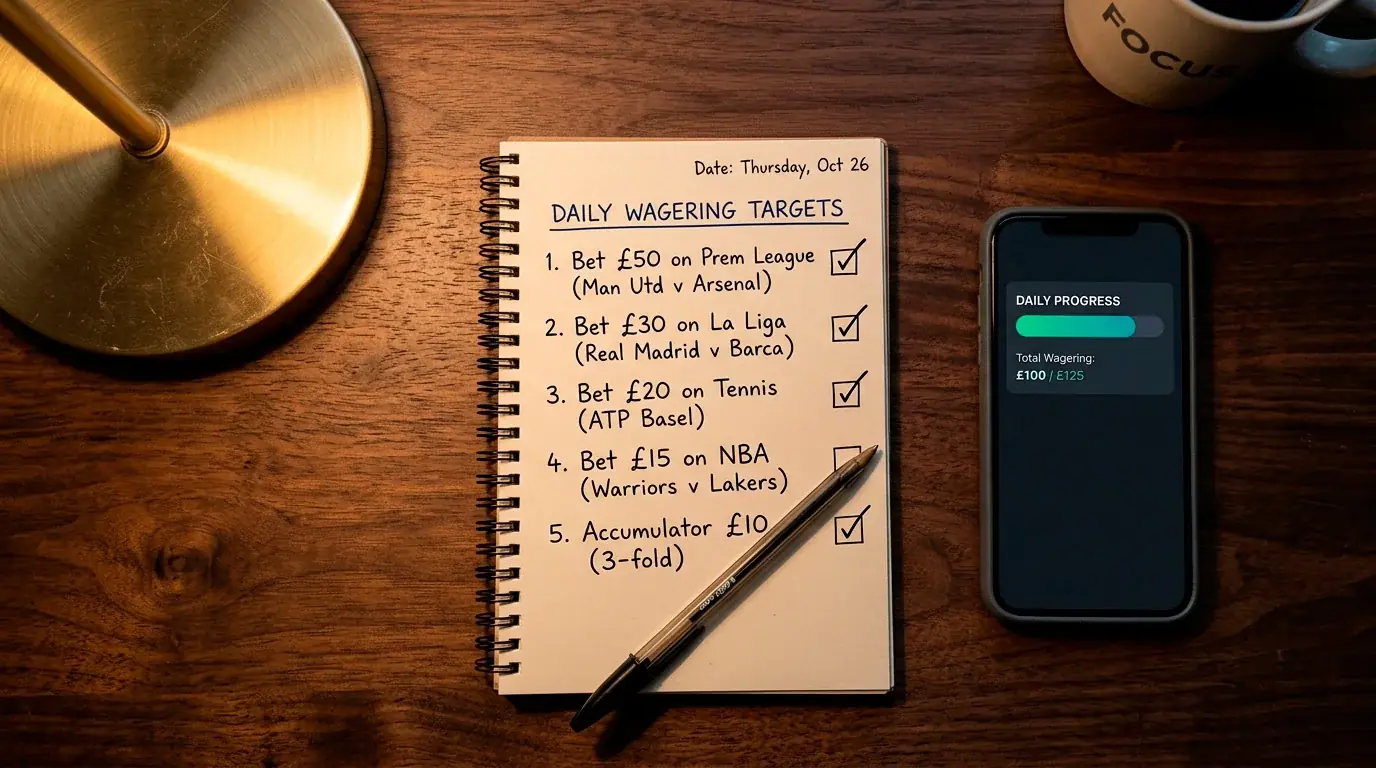 FOCUS
Date: Thursday, Oct 26
DAILY WAGERING TARGETS
1. Bet £50 on Prem League
(Man Utd v Arsenal)
2. Bet £30 on La Liga
(Real Madrid v Barca)
3. Bet £20 on Tennis
(ATP Basel)
4. Bet £15 on NBA
(Warriors v Lakers)
5. Accumulator £10
(3-fold)
DAILY PROGRESS
Total Wagering:
£100 / £125